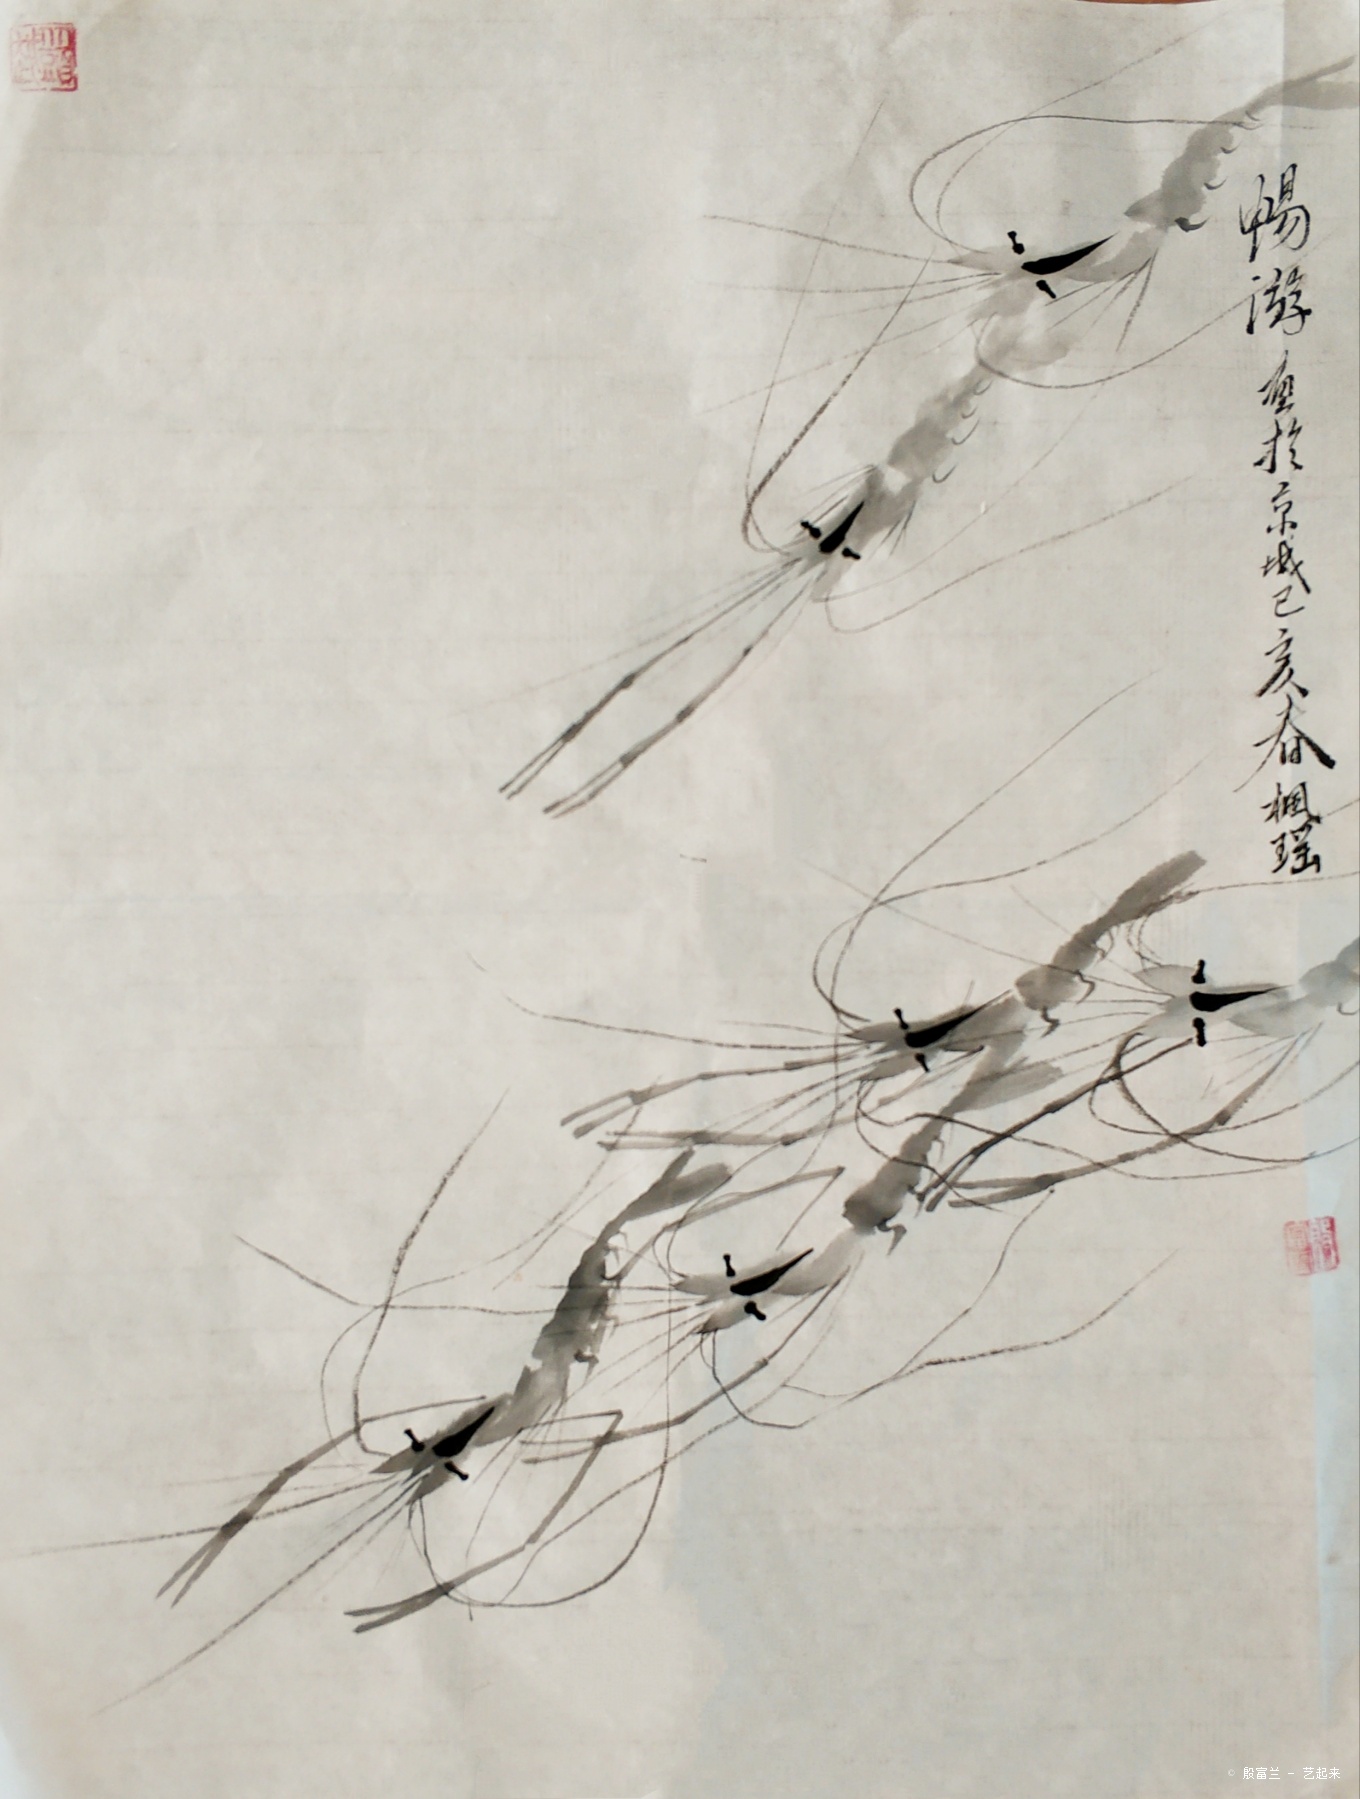 暢游 画於京城己亥春楓瑶
© 殷富兰 - 艺起来